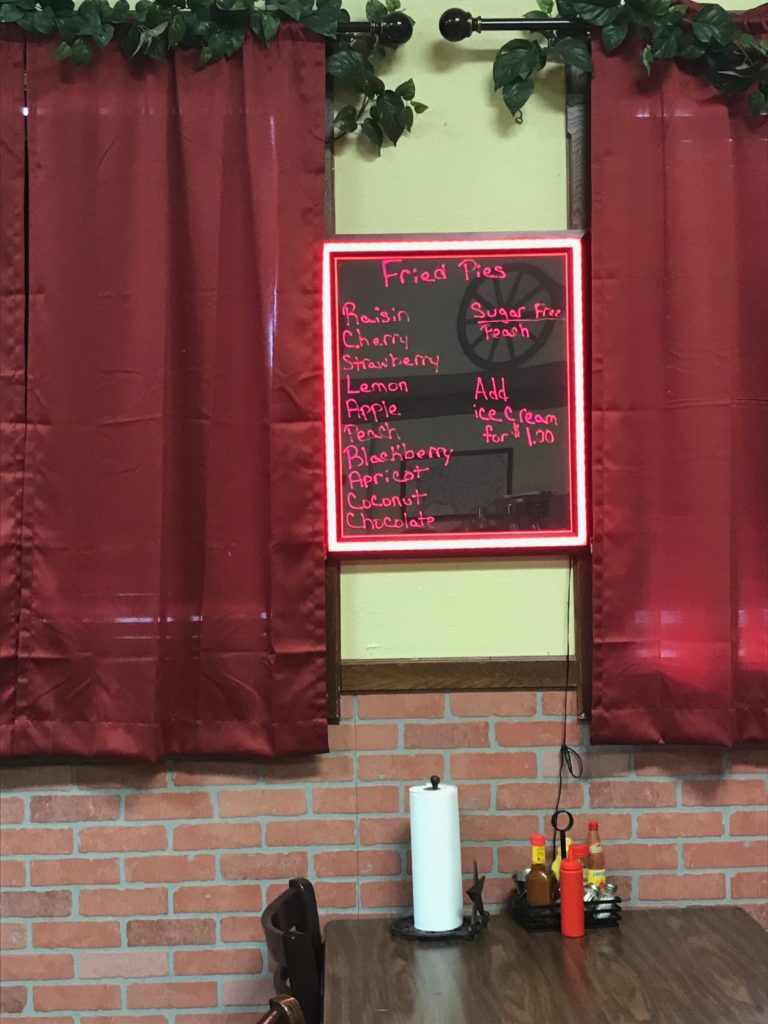 Fried Pies
Raisin
Cherry
Strawberry
Lemon
Apple
Peach
Blackberry
Apricot
Coconut
Chocolate
Sugar Free
Peach
Add
ice cream
for $1.00